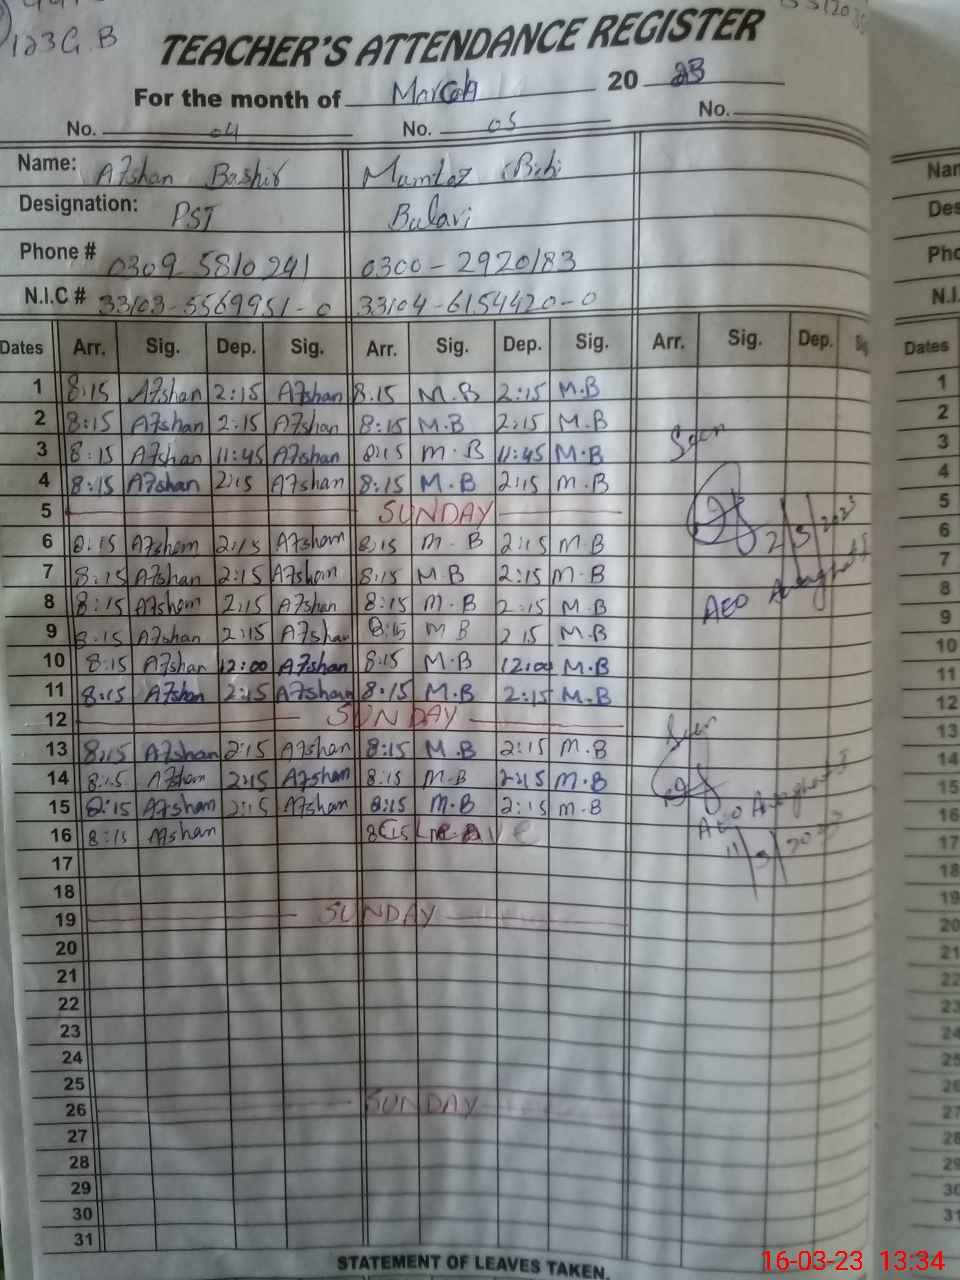 123 G.B
TEACHER'S ATTENDANCE REGISTER
For the month of March 20 23
No. 04 No. 05 No.
Name: Afshan Bashir Mumtaz Bibi
Designation: PST Bulavi
Phone # 0309 5810241 0300-2920183
N.I.C # 33103-5569951-0 33104-6154420-0
Dates Arr. Sig. Dep. Sig. Arr. Sig. Dep. Sig. Arr. Sig. Dep. Sig
1 8:15 Afshan 2:15 Afshan 8:15 M.B 2:15 M.B
2 8:15 Afshan 2:15 Afshan 8:15 M.B 2:15 M.B
3 8:15 Afshan 11:45 Afshan 8:15 M.B 11:45 M.B Seen
4 8:15 Afshan 2:15 Afshan 8:15 M.B 2:15 M.B
5 SUNDAY
6 8:15 Afshan 2:15 Afshan 8:15 M.B 2:15 M.B 2/3/2023
7 8:15 Afshan 2:15 Afshan 8:15 M.B 2:15 M.B
8 8:15 Afshan 2:15 Afshan 8:15 M.B 2:15 M.B AEO
9 8:15 Afshan 2:15 Afshan 8:15 M B 2 15 M.B
10 8:15 Afshan 12:00 Afshan 8:15 M.B 12:00 M.B
11 8:15 Afshan 2:15 Afshan 8:15 M.B 2:15 M.B
12 SUNDAY
13 8:15 Afshan 2:15 Afshan 8:15 M.B 2:15 M.B Seen
14 8:15 Afshan 2:15 Afshan 8:15 M.B 2:15 M.B
15 8:15 Afshan 2:15 Afshan 8:15 M.B 2:15 M.B
16 8:15 Afshan AEO
17 11/3/2023
18
19 SUNDAY
20
21
22
23
24
25
26 SUNDAY
27
28
29
30
31
STATEMENT OF LEAVES TAKEN.
Dates
1
2
3
4
5
6
7
8
9
10
11
12
13
14
15
16
17
18
19
20
21
22
23
24
25
26
27
28
29
30
31
16-03-23 13:34